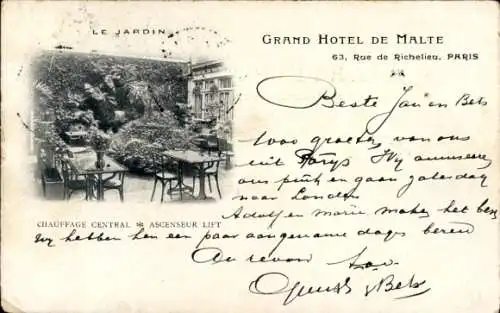 LE JARDIN
GRAND HOTEL DE MALTE
63, Rue de Richelieu, PARIS
Beste Jan en Bets
1000 groeten van ons
uit Parys Wy amuseeren
ons puik en gaan zaterdag
naar London
Adolf en marie maken het best
CHAUFFAGE CENTRAL ASCENSEUR LIFT
Wy hebben hen een paar aangename dagen bereid
Au revoir
Bets